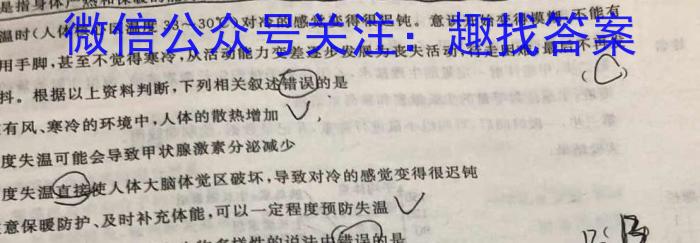 是指身体产热和保暖的
温时(人体核心温度33~30℃)对冷的感觉变得很迟钝。意识开始变得模糊,不能有
微信公众号关注:趣找答案
用手脚,甚至不觉得寒冷,从活动能力变差逐步发展为丧失活动,行走困难,最后不再发
抖。根据以上资料判断,下列相关叙述错误的是
有风、寒冷的环境中,人体的散热增加
度失温可能会导致甲状腺激素分泌减少
度失温直接使人体大脑体觉区破坏,导致对冷的感觉变得很迟钝
意保暖防护、及时补充体能,可以一定程度预防失温
多样性的说法中错误的是